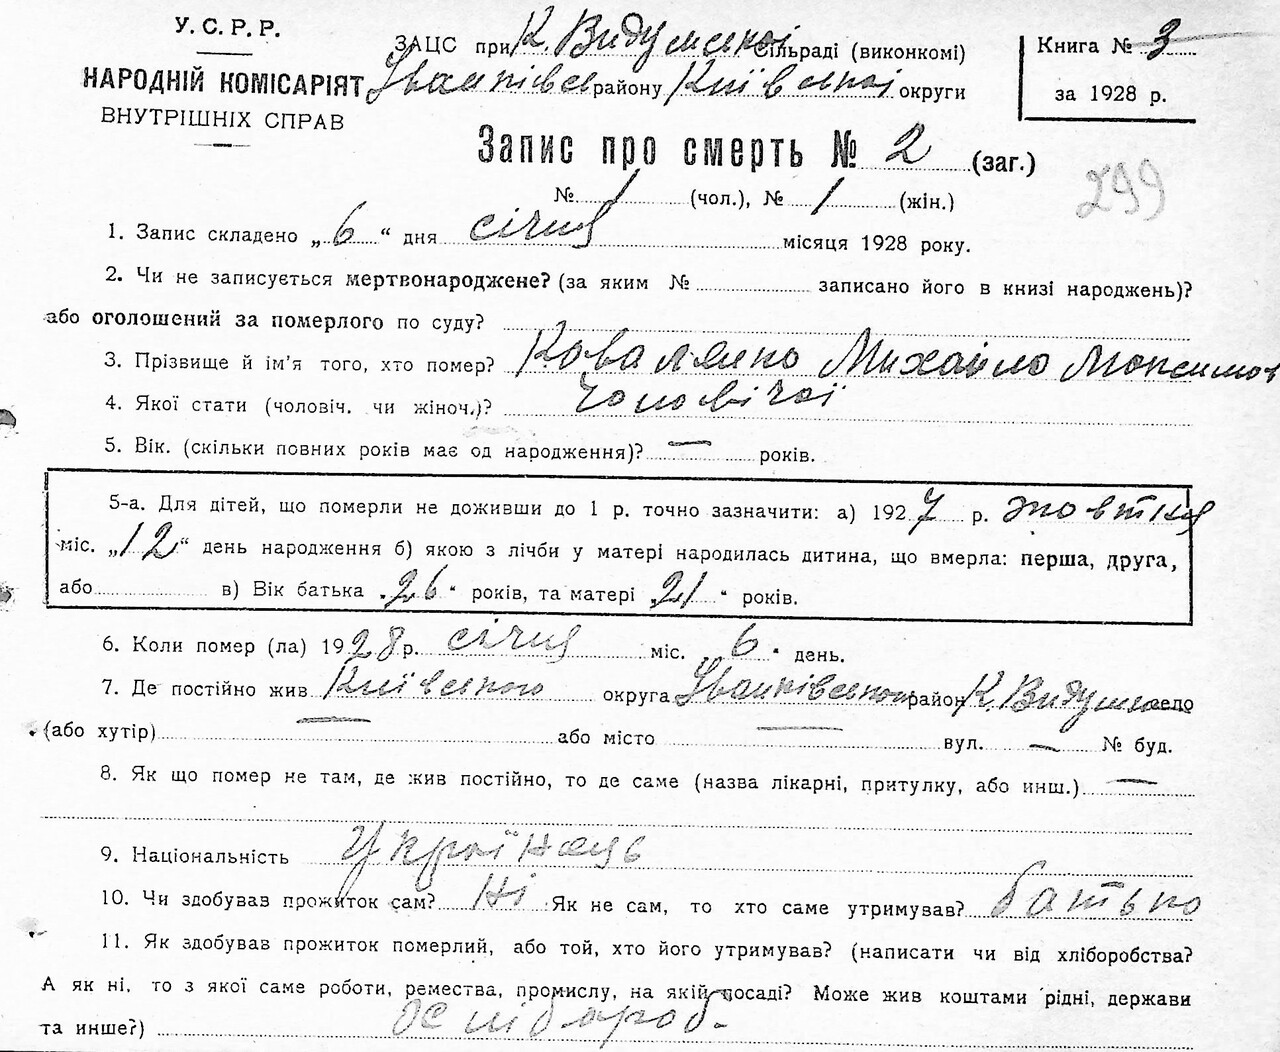 У. С. Р. Р.
НАРОДНІЙ КОМІСАРІЯТ
ВНУТРІШНІХ СПРАВ
ЗАЦС при К. Видумській сільраді (виконкомі)
Іванківськ району Київської округи
Книга № 3
за 1928 р.
Запис про смерть № 2 (заг.)
№ 1 (чол.), № 1 (жін.)
299
1. Запис складено „ 6 “ дня січня місяця 1928 року.
2. Чи не записується мертвонароджене? (за яким № записано його в книзі народжень)?
або оголошений за померлого по суду?
3. Прізвище й ім’я того, хто помер? Михайло Максимов
4. Якої стати (чоловіч. чи жіноч.)? чоловічої
5. Вік. (скільки повних років має од народження)? — років.
5-а. Для дітей, що померли не доживши до 1 р. точно зазначити: а) 1927 р. жовтня
міс. „12“ день народження б) якою з лічби у матері народилась дитина, що вмерла: перша, друга,
або в) Вік батька „26“ років, та матері „21“ років.
6. Коли помер (ла) 1928 р. січня міс. „6“ день.
7. Де постійно жив Київського округа Іванківського район К. Видумка село
(або хутір) — або місто — вул. — № буд.
8. Як що помер не там, де жив постійно, то де саме (назва лікарні, притулку, або инш.) —
9. Національність Українець
10. Чи здобував прожиток сам? Ні Як не сам, то хто саме утримував? батько
11. Як здобував прожиток померлий, або той, хто його утримував? (написати чи від хліборобства?
А як ні, то з якої саме роботи, ремества, промислу, на якій посаді? Може жив коштами рідні, держави
та инше?) хлібороб.